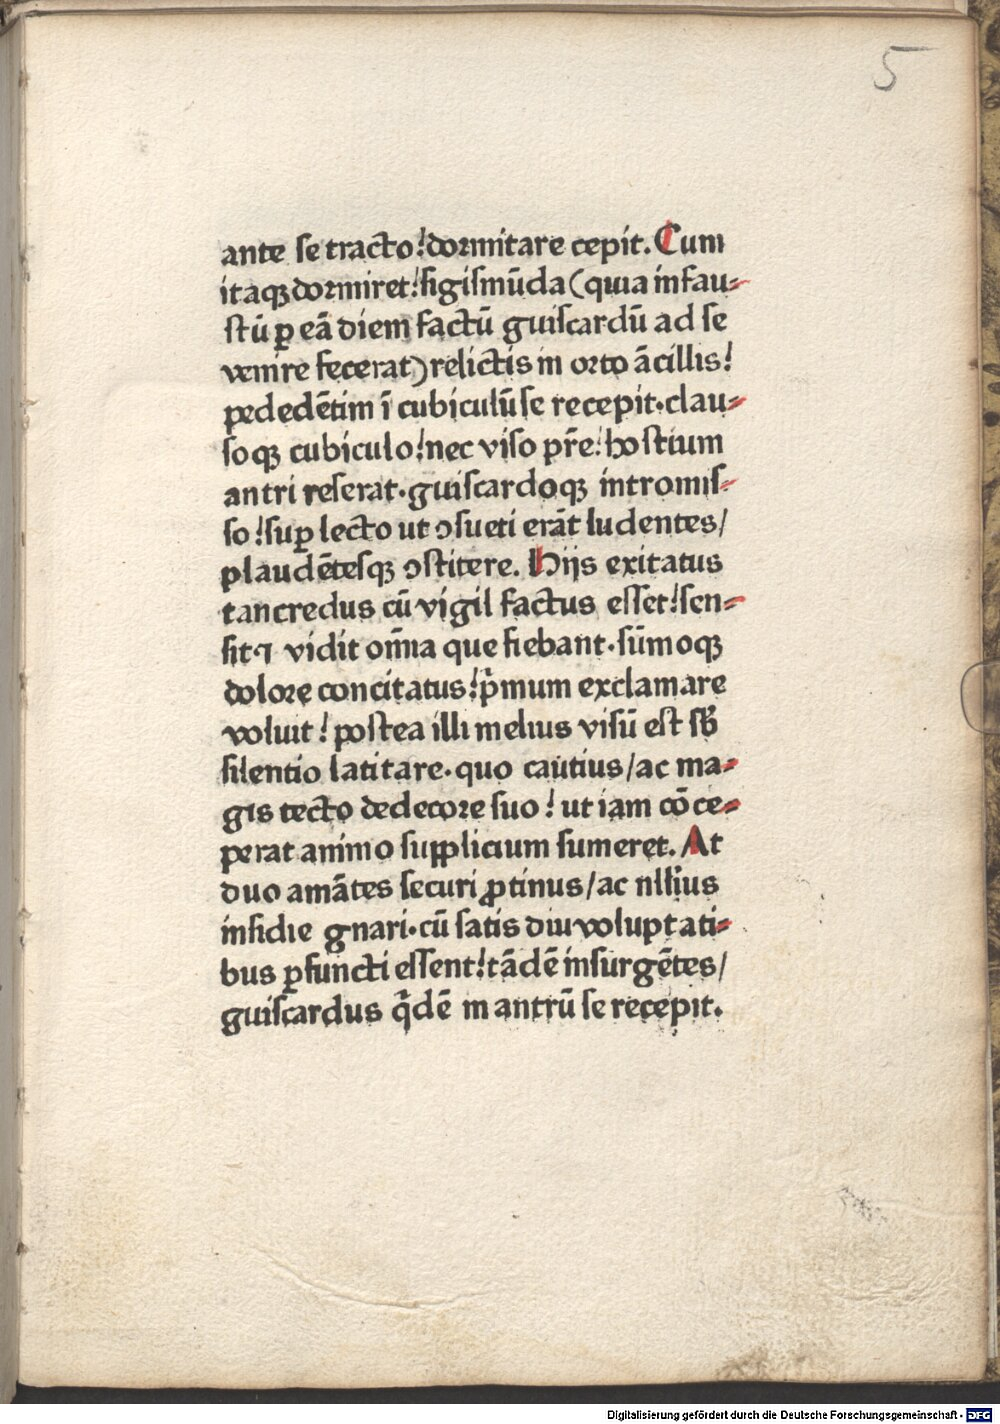 5
ante se tracto! dormitare cepit. Cum
itaqꝫ dormiret! sigismūda (quia infau⸗
stū ꝑ eā diem factū guiscardū ad se
venire fecerat) relictis in orto ācillis!
pededētim ī cubiculū se recepit· clau⸗
soqꝫ cubiculo! nec viso pr̄e! hostium
antri reserat· guiscardoqꝫ intromis⸗
so! suꝑ lecto ut ꝯsueti erāt ludentes/
plaudētesqꝫ ꝯstitere. Hijs exitatus
tancredus cū vigil factus esset! sen⸗
sit· ⁊ vidit om̄ia que fiebant· sūmoqꝫ
dolore concitatus! p̄mum exclamare
voluit! postea illi melius visū est sb̄
silentio latitare· quo cautius/ ac ma⸗
gis tecto dedecore suo! ut iam cōce⸗
perat animo supplicium sumeret. At
duo amātes securi ꝓtinus/ ac nllius
insidie gnari· cū satis diu voluptati⸗
bus ꝑfuncti essent! tādē insurgētes/
guiscardus q̄dē in antrū se recepit.
Digitalisierung gefördert durch die Deutsche Forschungsgemeinschaft - DFG